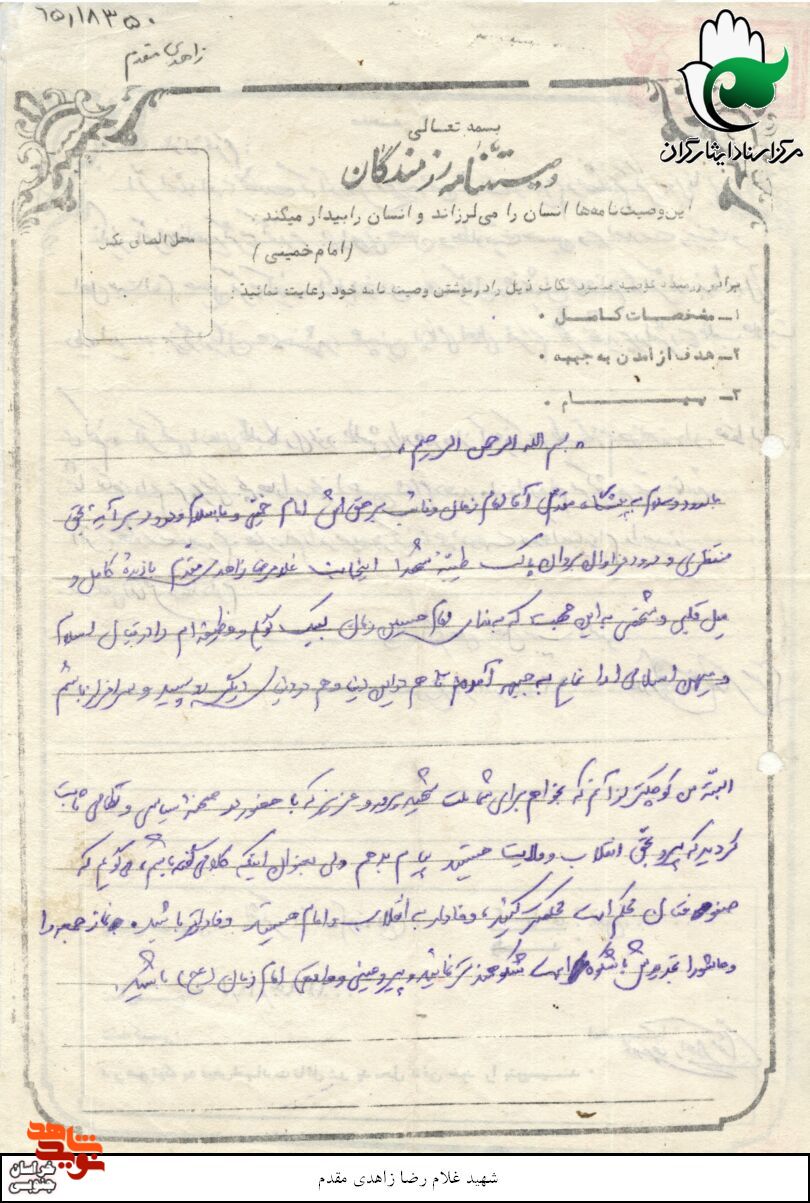 ۶۵/۱۸۳۵۰
زاهدی مقدم
مرکز اسناد ایثارگران
بسمه تعالی
وصیتنامه رزمندگان
این وصیت نامه‌ها انسان را می لرزاند و انسان را بیدار میکند.
(امام خمینی)
محل الصاق عکس
برادر رزمنده توصیه میشود نکات ذیل را در نوشتن وصیت نامه خود رعایت نمائید:
۱ـ مشخصات کامل.
۲ـ هدف از آمدن به جبهه.
۳ـ پیام.
بسم الله الرحمن الرحیم
با درود و سلام به پیشگاه مقدس آقا امام زمان و نائب برحقش امام خمینی و با سلام و درود بر آیة الحق
منتظری و درود فراوان بروان پاک طیبه شهدا اینجانب غلامرضا زاهدی مقدم با زیده کامل و
میل قلبی و شخصی به این جهت که به ندای امام حسین زمان لبیک گویم و وظیفه ام را در قبال اسلام
و میهن اسلامی ادا نمایم به جبهه آمدم تا هم در این دنیا و هم در دنیای دیگر رو سپید و سرافراز باشم
البته من کوچکتر از آنم که بخواهم برای شما ملت شهید پرور و عزیز که با حضور در صحنه سیاسی و نظامی ثابت
کردید که پیرو بحق انقلاب و ولایت هستید پیام بدهم ولی بعنوان اینکه کلامی گفته باشم، میگویم که
صفوفتان محکم است محکمتر کنید، وفادار به انقلاب و امام هستید وفادارتر باشید. نماز جمعه را
و عاشورا باشکوه است شکوهمندتر نمایید و پیرو عینی و واقعی امام زمان (عج) باشید.
نوید شاهد
خراسان جنوبی
شهید غلام رضا زاهدی مقدم